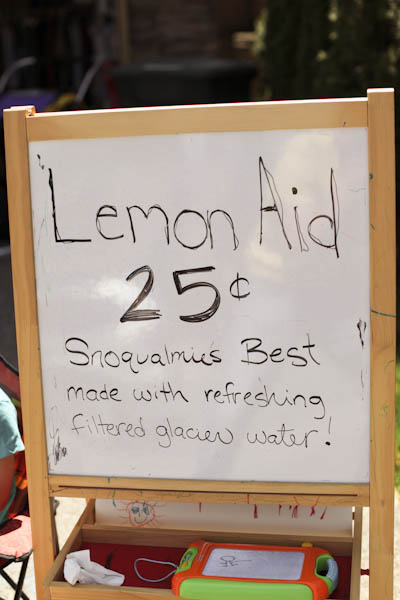 Lemon Aid
25¢
Snoqualmie's Best
made with refreshing
filtered glacier water!